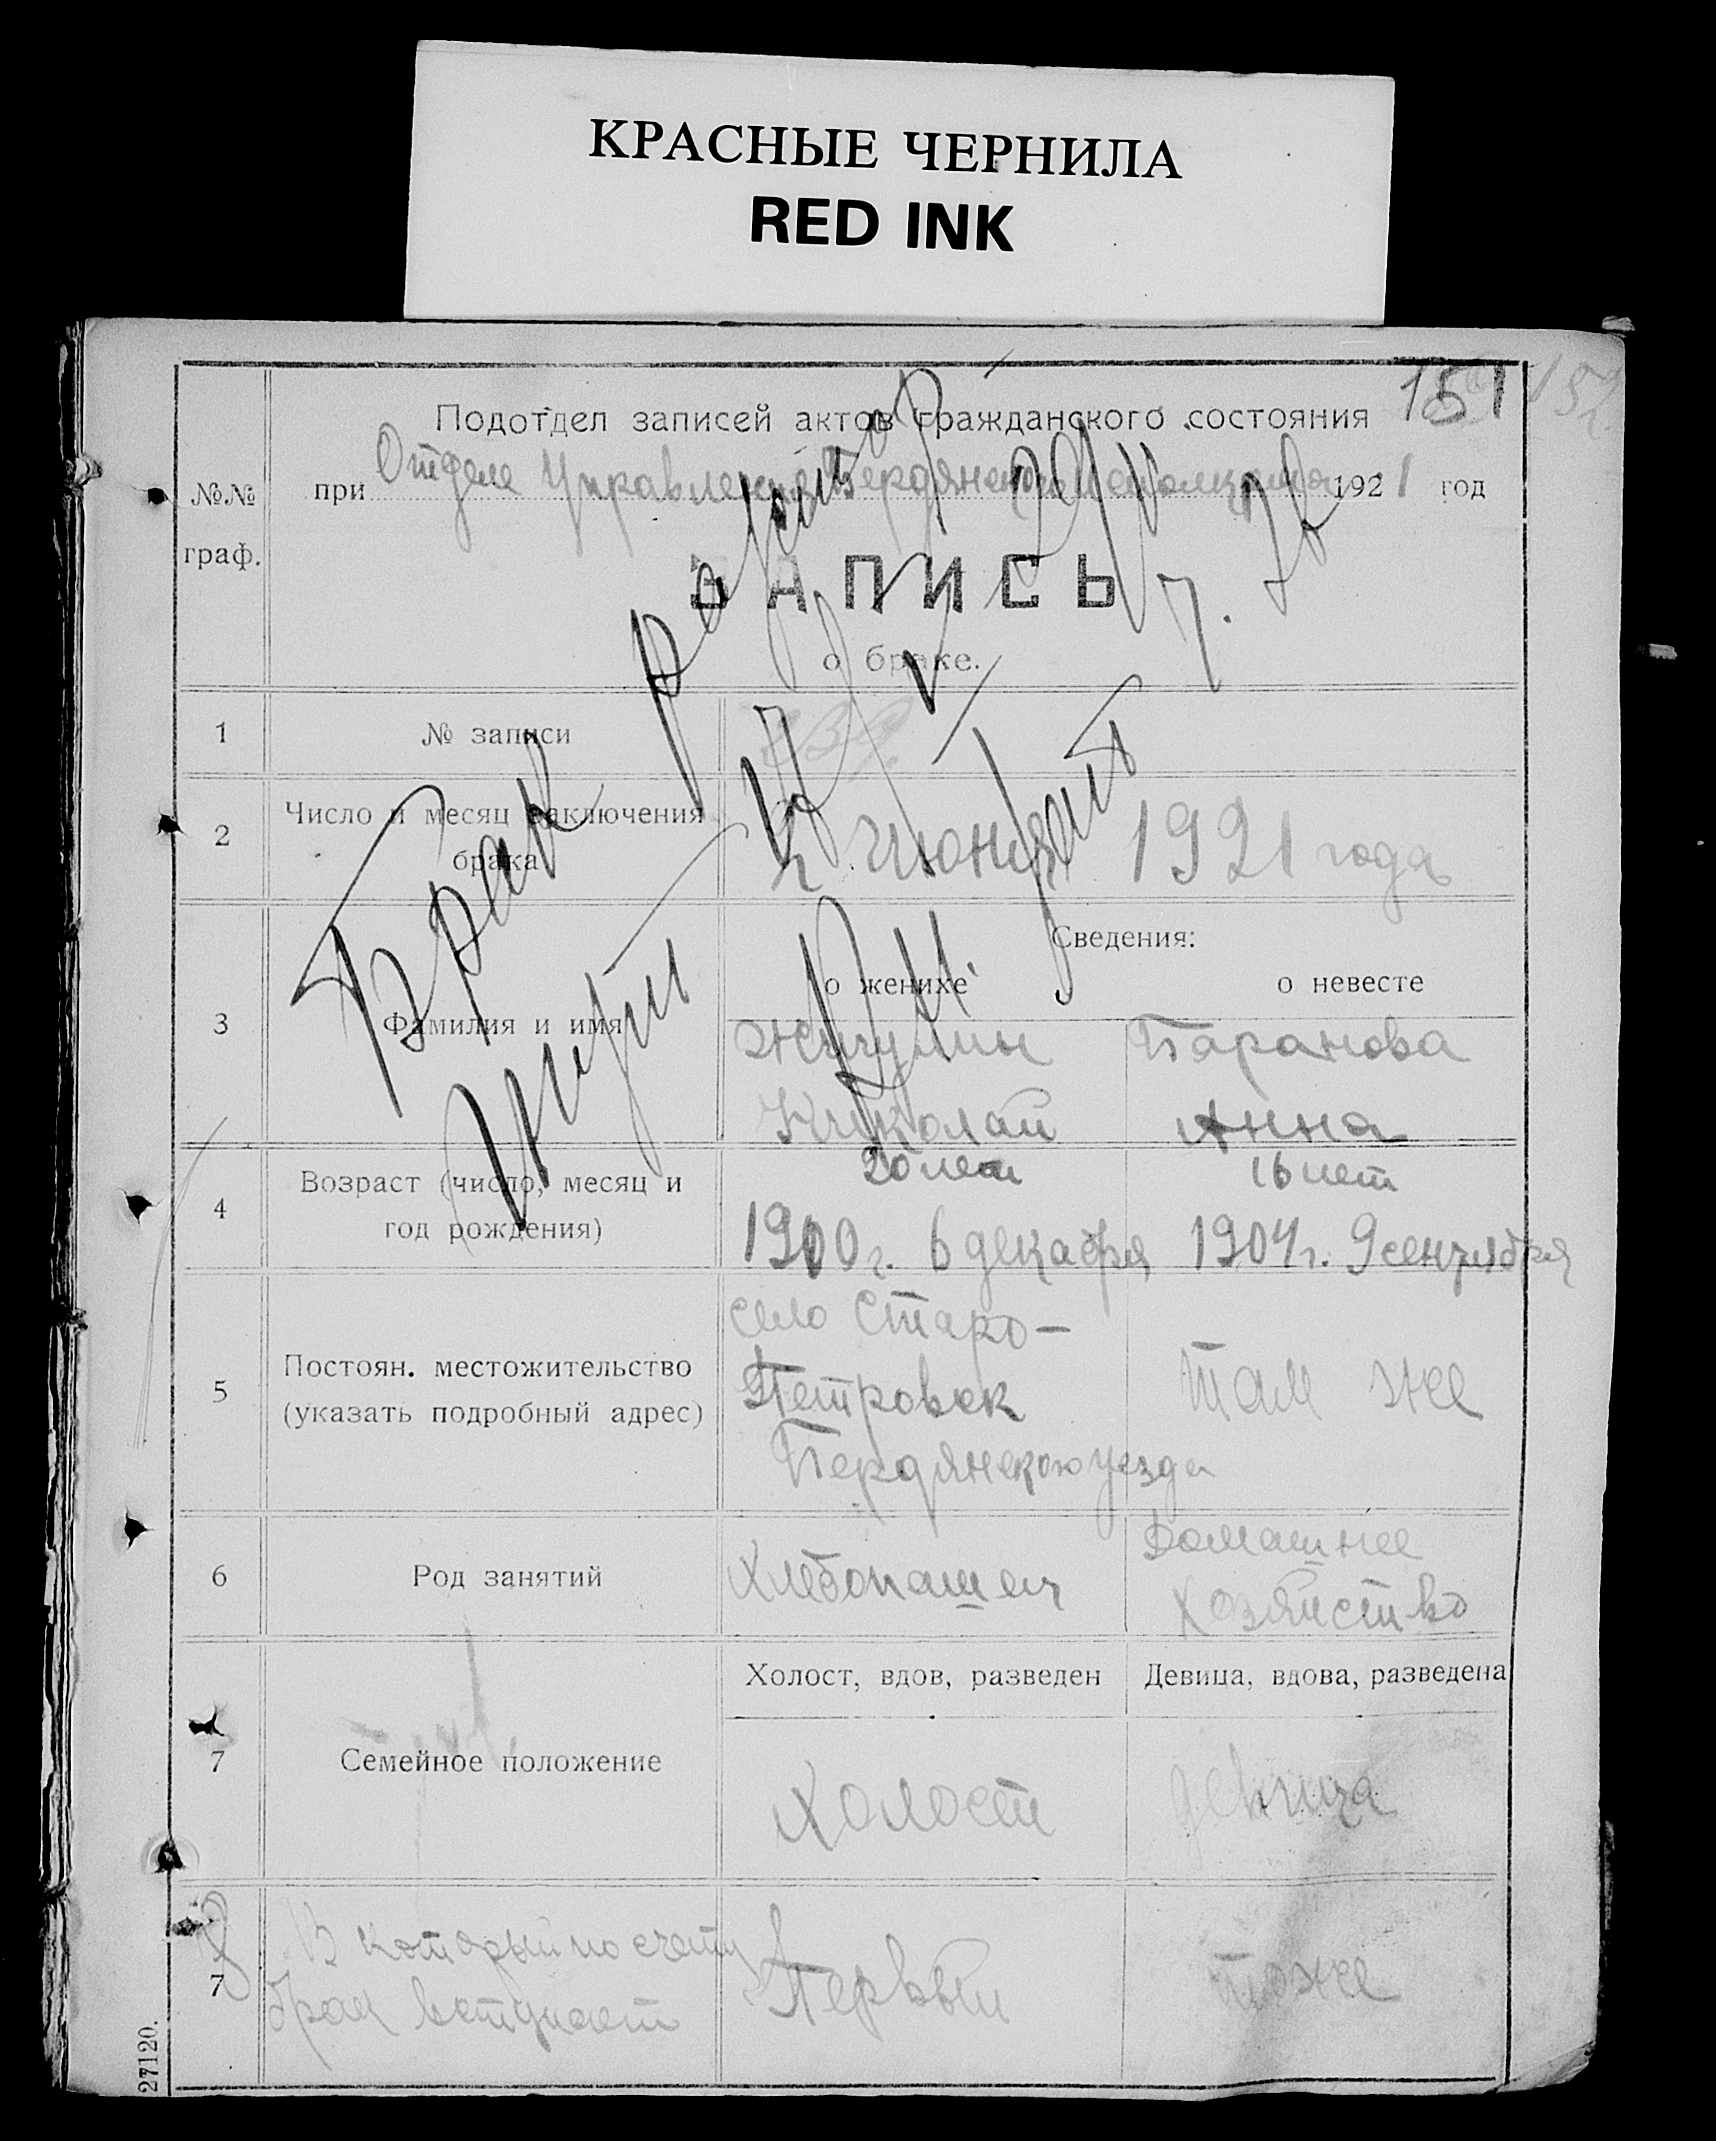 КРАСНЫЕ ЧЕРНИЛА
RED INK
151 152
Подотдел записей актов гражданского состояния
№№ граф.
при Отделе Управления Бердянского Исполкома 1921 год
ЗАПИСЬ
о браке.
Брак
1 № записи
2 Число и месяц заключения брака
2 Июня 1921 года
Сведения:
о женихе о невесте
3 Фамилия и имя
Баранова
Николай Анна
4 Возраст (число, месяц и год рождения)
20 лет 16 лет
1900 г. 6 декабря 1904 г. 9 сентября
5 Постоян. местожительство (указать подробный адрес)
село Старо-
Петровск там же
Бердянского уезда
6 Род занятий
Хлебопашец Домашнее
хозяйство
7 Семейное положение
Холост, вдов, разведен Девица, вдова, разведена
Холост девица
8
7
В который по счету
брак вступает
Первый тоже
27120.